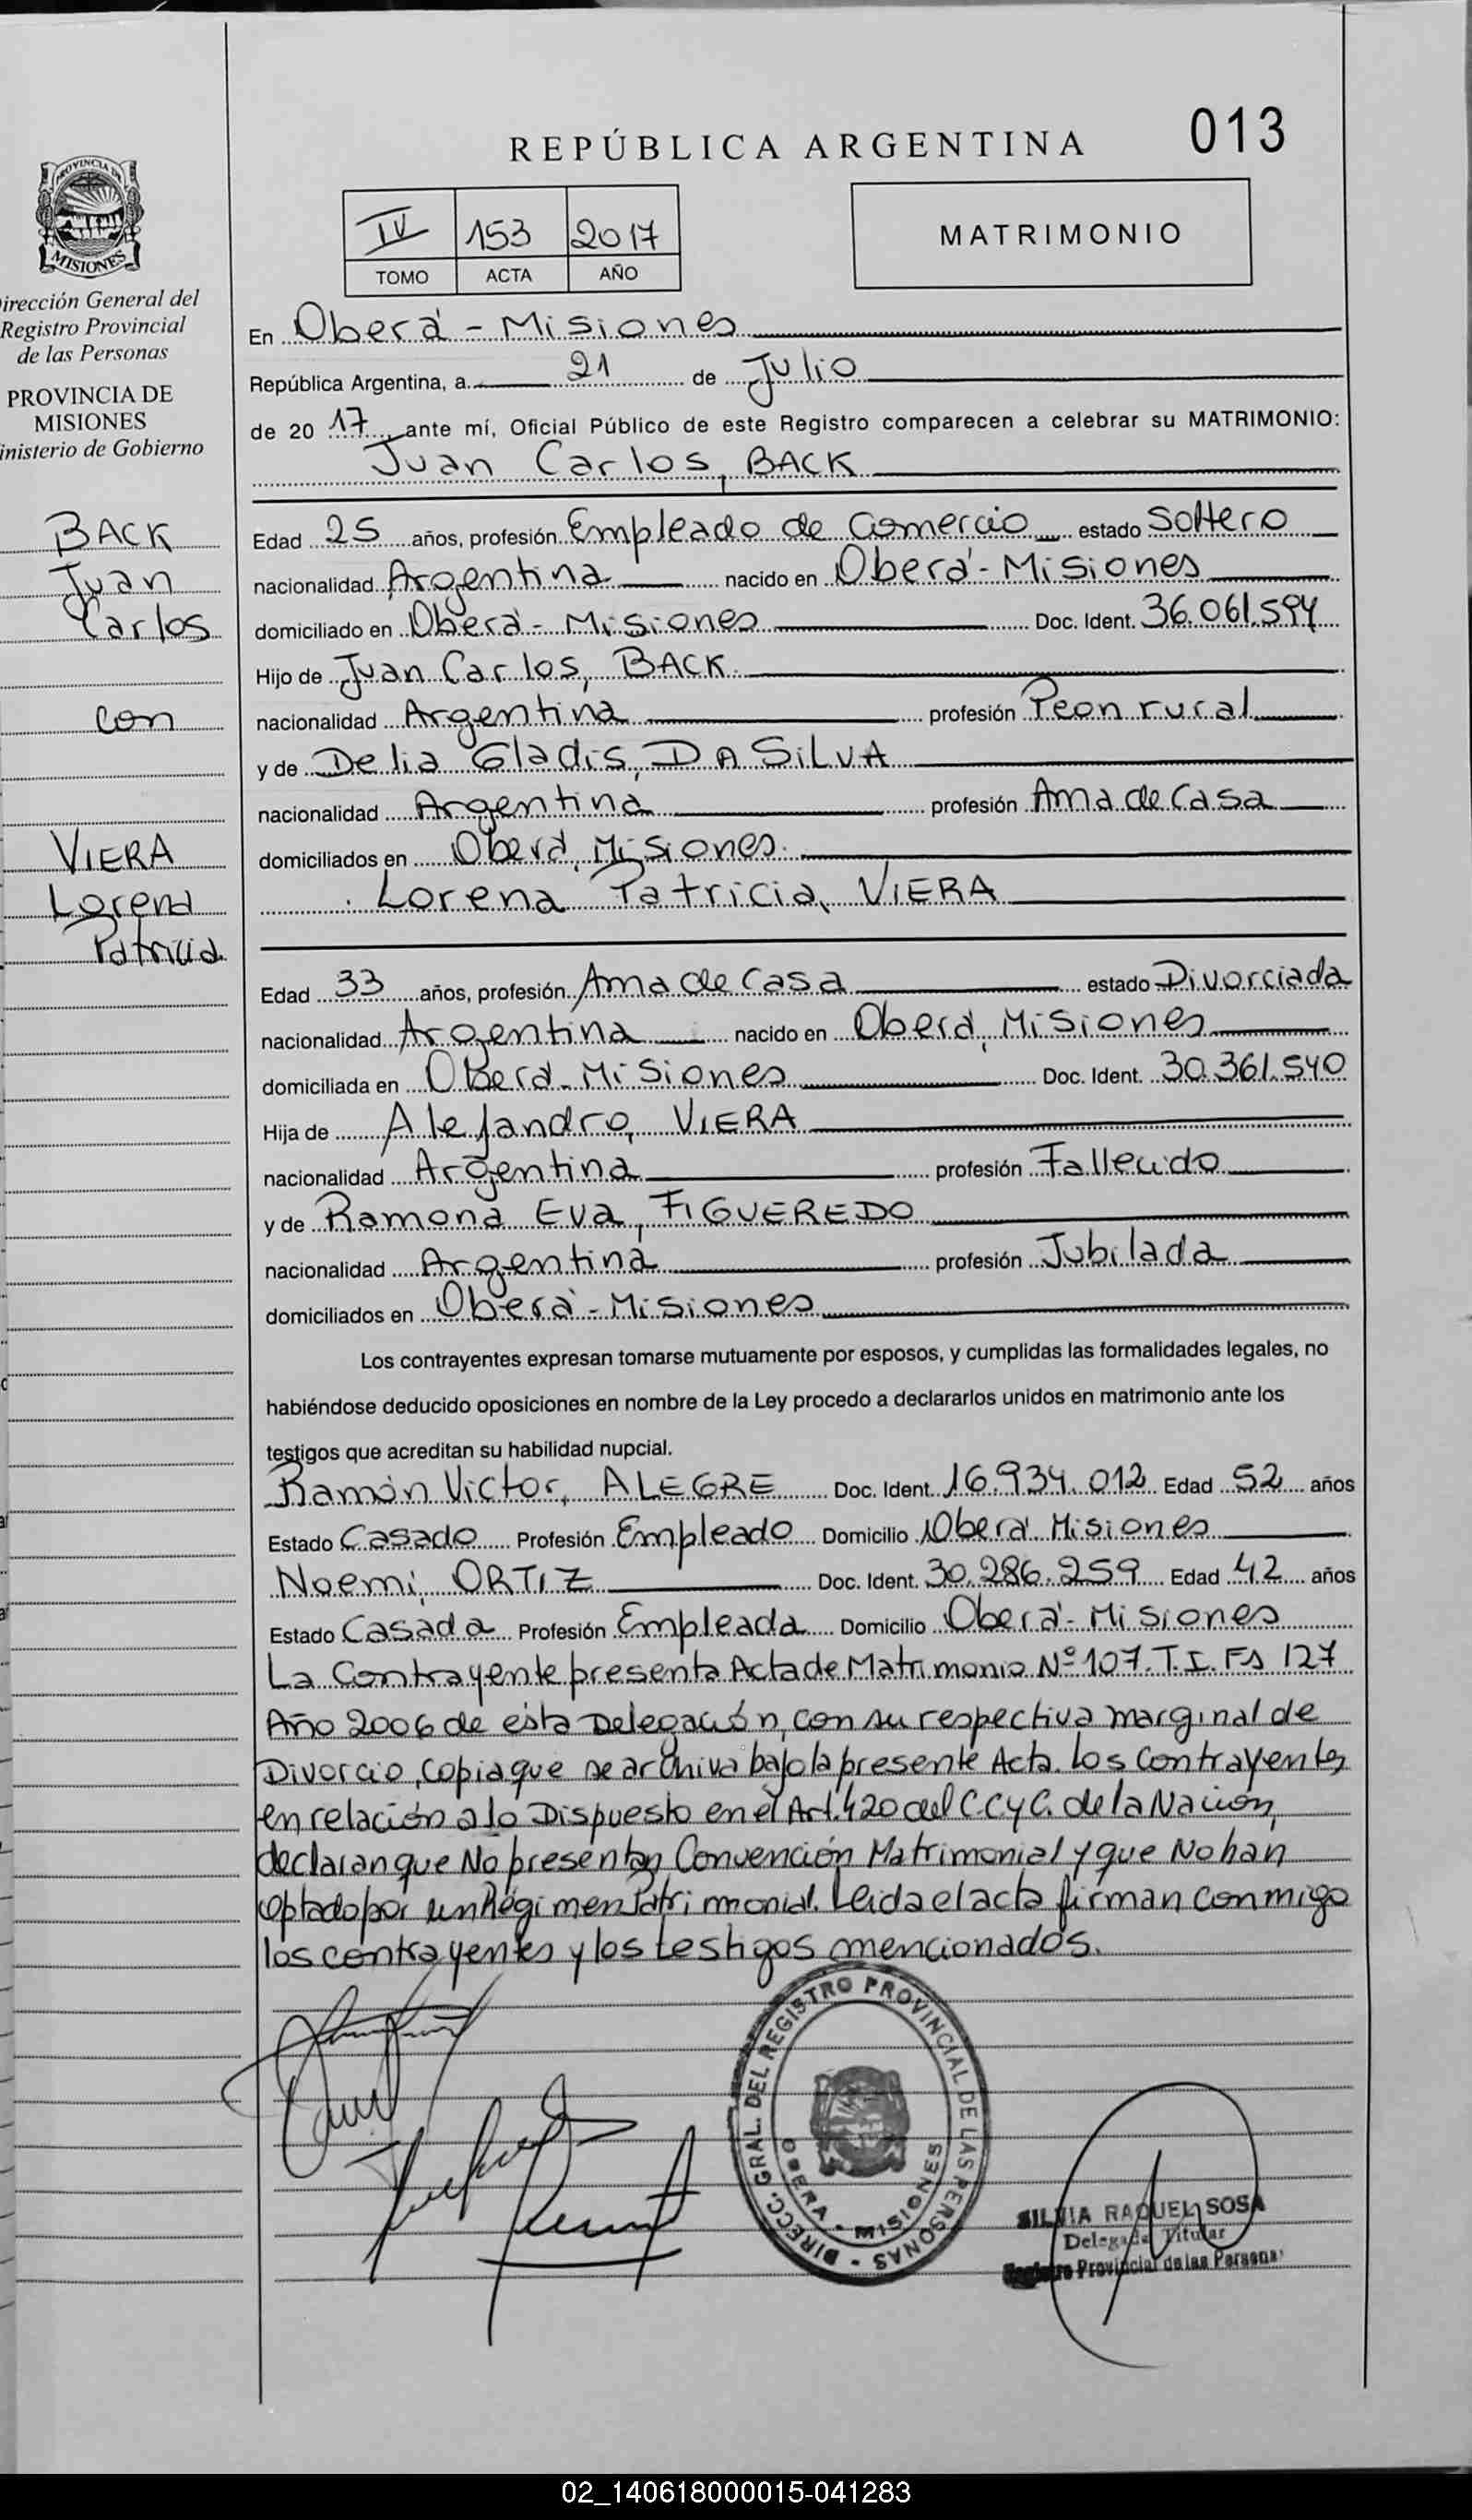 REPÚBLICA ARGENTINA
013
IV 153 2017
TOMO ACTA AÑO
MATRIMONIO
PROVINCIA DE
MISIONES
irección General del
Registro Provincial
de las Personas
PROVINCIA DE
MISIONES
inisterio de Gobierno
BACK
Juan
Carlos
con
VIERA
Lorena
Patricia
En Oberá - Misiones
República Argentina, a 21 de Julio
de 20 17, ante mí, Oficial Público de este Registro comparecen a celebrar su MATRIMONIO:
Juan Carlos, BACK
Edad 25 años, profesión Empleado de Comercio estado Soltero
nacionalidad Argentina nacido en Oberá - Misiones
domiciliado en Oberá - Misiones Doc. Ident. 36.061.594
Hijo de Juan Carlos, BACK
nacionalidad Argentina profesión Peon rural
y de Delia Gladis, DA SILVA
nacionalidad Argentina profesión Ama de Casa
domiciliados en Oberá, Misiones.
Lorena Patricia, VIERA
Edad 33 años, profesión Ama de Casa estado Divorciada
nacionalidad Argentina nacido en Oberá, Misiones
domiciliada en Oberá - Misiones Doc. Ident. 30.361.540
Hija de Alejandro, VIERA
nacionalidad Argentina profesión Fallecido
y de Ramona Eva, FIGUEREDO
nacionalidad Argentina profesión Jubilada
domiciliados en Oberá - Misiones
Los contrayentes expresan tomarse mutuamente por esposos, y cumplidas las formalidades legales, no
habiéndose deducido oposiciones en nombre de la Ley procedo a declararlos unidos en matrimonio ante los
testigos que acreditan su habilidad nupcial.
Ramón Victor, ALEGRE Doc. Ident. 16.934.012 Edad 52 años
Estado Casado Profesión Empleado Domicilio Oberá Misiones
Noemi, ORTIZ Doc. Ident. 30.286.259 Edad 42 años
Estado Casada Profesión Empleada Domicilio Oberá - Misiones
La Contrayente presenta Acta de Matrimonio Nº 107. T. I. Fs 127
Año 2006 de esta Delegación, con su respectiva marginal de
Divorcio, copia que se archiva bajo la presente Acta. Los contrayentes
en relación a lo Dispuesto en el Art. 420 del C.C y C. de la Nación,
declaran que No presentan Convención Matrimonial y que No han
optado por un Régimen Patrimonial. Leida el acta firman conmigo
los contrayentes y los testigos mencionados.
DIRECC. GRAL. DEL REGISTRO PROVINCIAL DE LAS PERSONAS
OBERA - MISIONES
SILVIA RAQUEL SOSA
Delegada Titular
Registro Provincial de las Personas
02_140618000015-041283